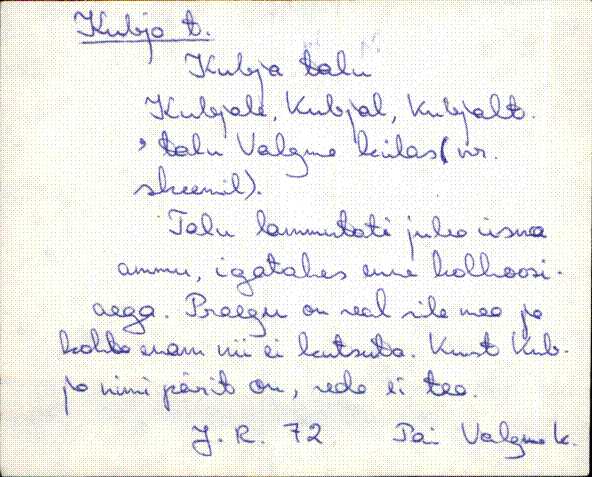 Kubja t.
Kubja talu
Kubjale, Kubjal, Kubjalt.
talu Valgma külas (vr.
skeemil).
Talu lammutati juba üsna
ammu, igatahes enne kolhoosi-
aega. Praegu on seal sile maa ja
kohta enam nii ei kutsuta. Kust Kub-
ja nimi pärit on, seda ei tea.
J. R. 72 Pai Valgma k.